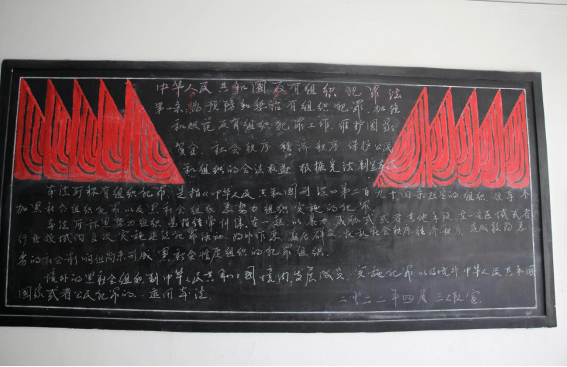 中华人民共和国反有组织犯罪法
第一条：为预防和惩治有组织犯罪，加强
和规范反有组织犯罪工作，维护国家
安全、社会秩序、经济秩序，保护公民
和组织的合法权益，根据宪法，制定本法
本法所称有组织犯罪，是指《中华人民共和国刑法》第二百九十四条规定的组织、领导、参
加黑社会性质组织犯罪，以及黑社会组织、恶势力组织实施的犯罪。
本法所称恶势力组织，是指经常纠集在一起，以暴力、威胁或者其他手段，在一定区域或者
行业领域内多次实施违法犯罪活动，为非作恶，欺压群众，扰乱社会秩序、经济秩序，造成较为恶
劣的社会影响，但尚未形成黑社会性质组织的犯罪组织。
境外的黑社会组织到中华人民共和国境内发展成员、实施犯罪，以及在境外对中华人民共和国
国家或者公民犯罪的，适用本法。
二零二二年四月 三队宣